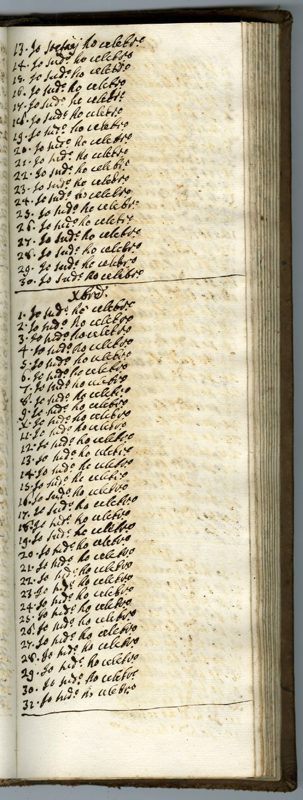 13. Io stesso ho celebro
14. Io sud.º ho celebro
15. Io sud.º ho celebro
16. Io sud.º ho celebro
17. Io sud.º ho celebro
18. Io sud.º ho celebro
19. Io sud.º ho celebro
20. Io sud.º ho celebro
21. Io sud.º ho celebro
22. Io sud.º ho celebro
23. Io sud.º ho celebro
24. Io sud.º ho celebro
25. Io sud.º ho celebro
26. Io sud.º ho celebro
27. Io sud.º ho celebro
28. Io sud.º ho celebro
29. Io sud.º ho celebro
30. Io sud.º ho celebro
Xbre.
1. Io sud.º ho celebro
2. Io sud.º ho celebro
3. Io sud.º ho celebro
4. Io sud.º ho celebro
5. Io sud.º ho celebro
6. Io sud.º ho celebro
7. Io sud.º ho celebro
8. Io sud.º ho celebro
9. Io sud.º ho celebro
X. Io sud.º ho celebro
11. Io sud.º ho celebro
12. Io sud.º ho celebro
13. Io sud.º ho celebro
14. Io sud.º ho celebro
15. Io sud.º ho celebro
16. Io sud.º ho celebro
17. Io sud.º ho celebro
18. Io sud.º ho celebro
19. Io sud.º ho celebro
20. Io sud.º ho celebro
21. Io sud.º ho celebro
22. Io sud.º ho celebro
23. Io sud.º ho celebro
24. Io sud.º ho celebro
25. Io sud.º ho celebro
26. Io sud.º ho celebro
27. Io sud.º ho celebro
28. Io sud.º ho celebro
29. Io sud.º ho celebro
30. Io sud.º ho celebro
31. Io sud.º ho celebro